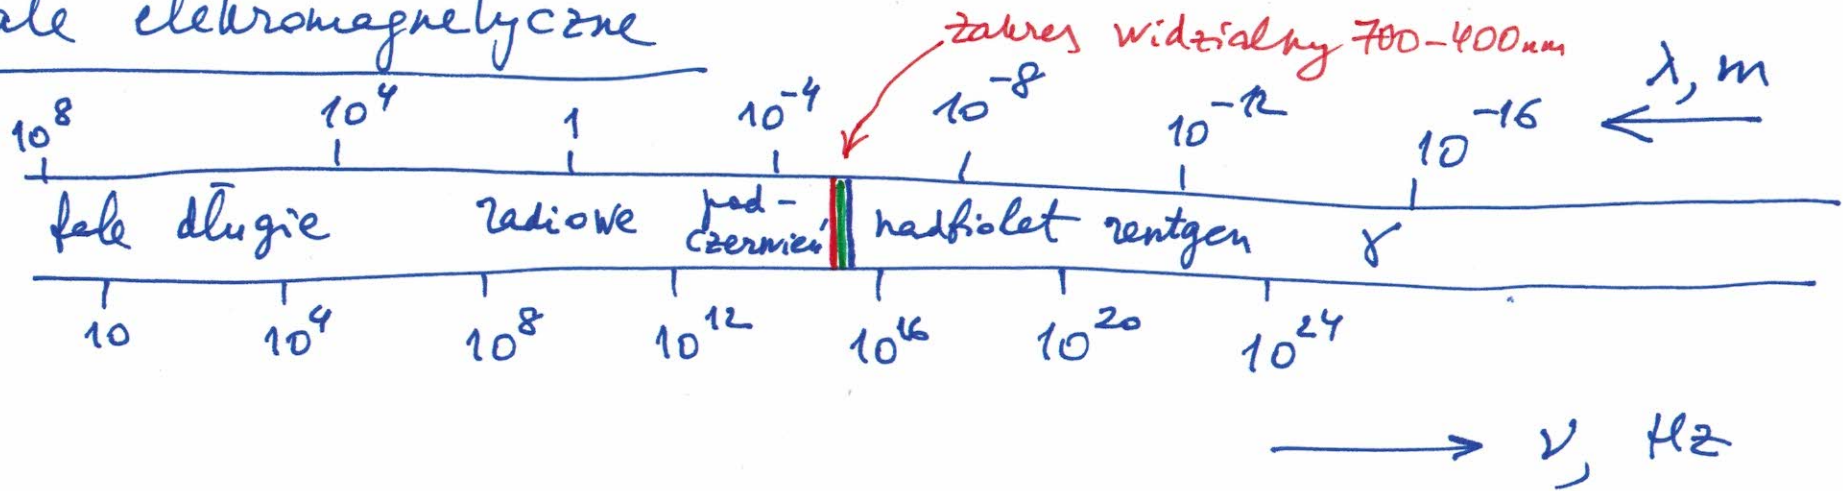 ale elektromagnetyczne
zakres widzialny 700-400nm
10⁸ 10⁴ 1 10⁻⁴ 10⁻⁸ 10⁻¹² 10⁻¹⁶ λ, m
fale długie radiowe pod-
czerwień nadfiolet rentgen γ
10 10⁴ 10⁸ 10¹² 10¹⁶ 10²⁰ 10²⁴
ν, Hz